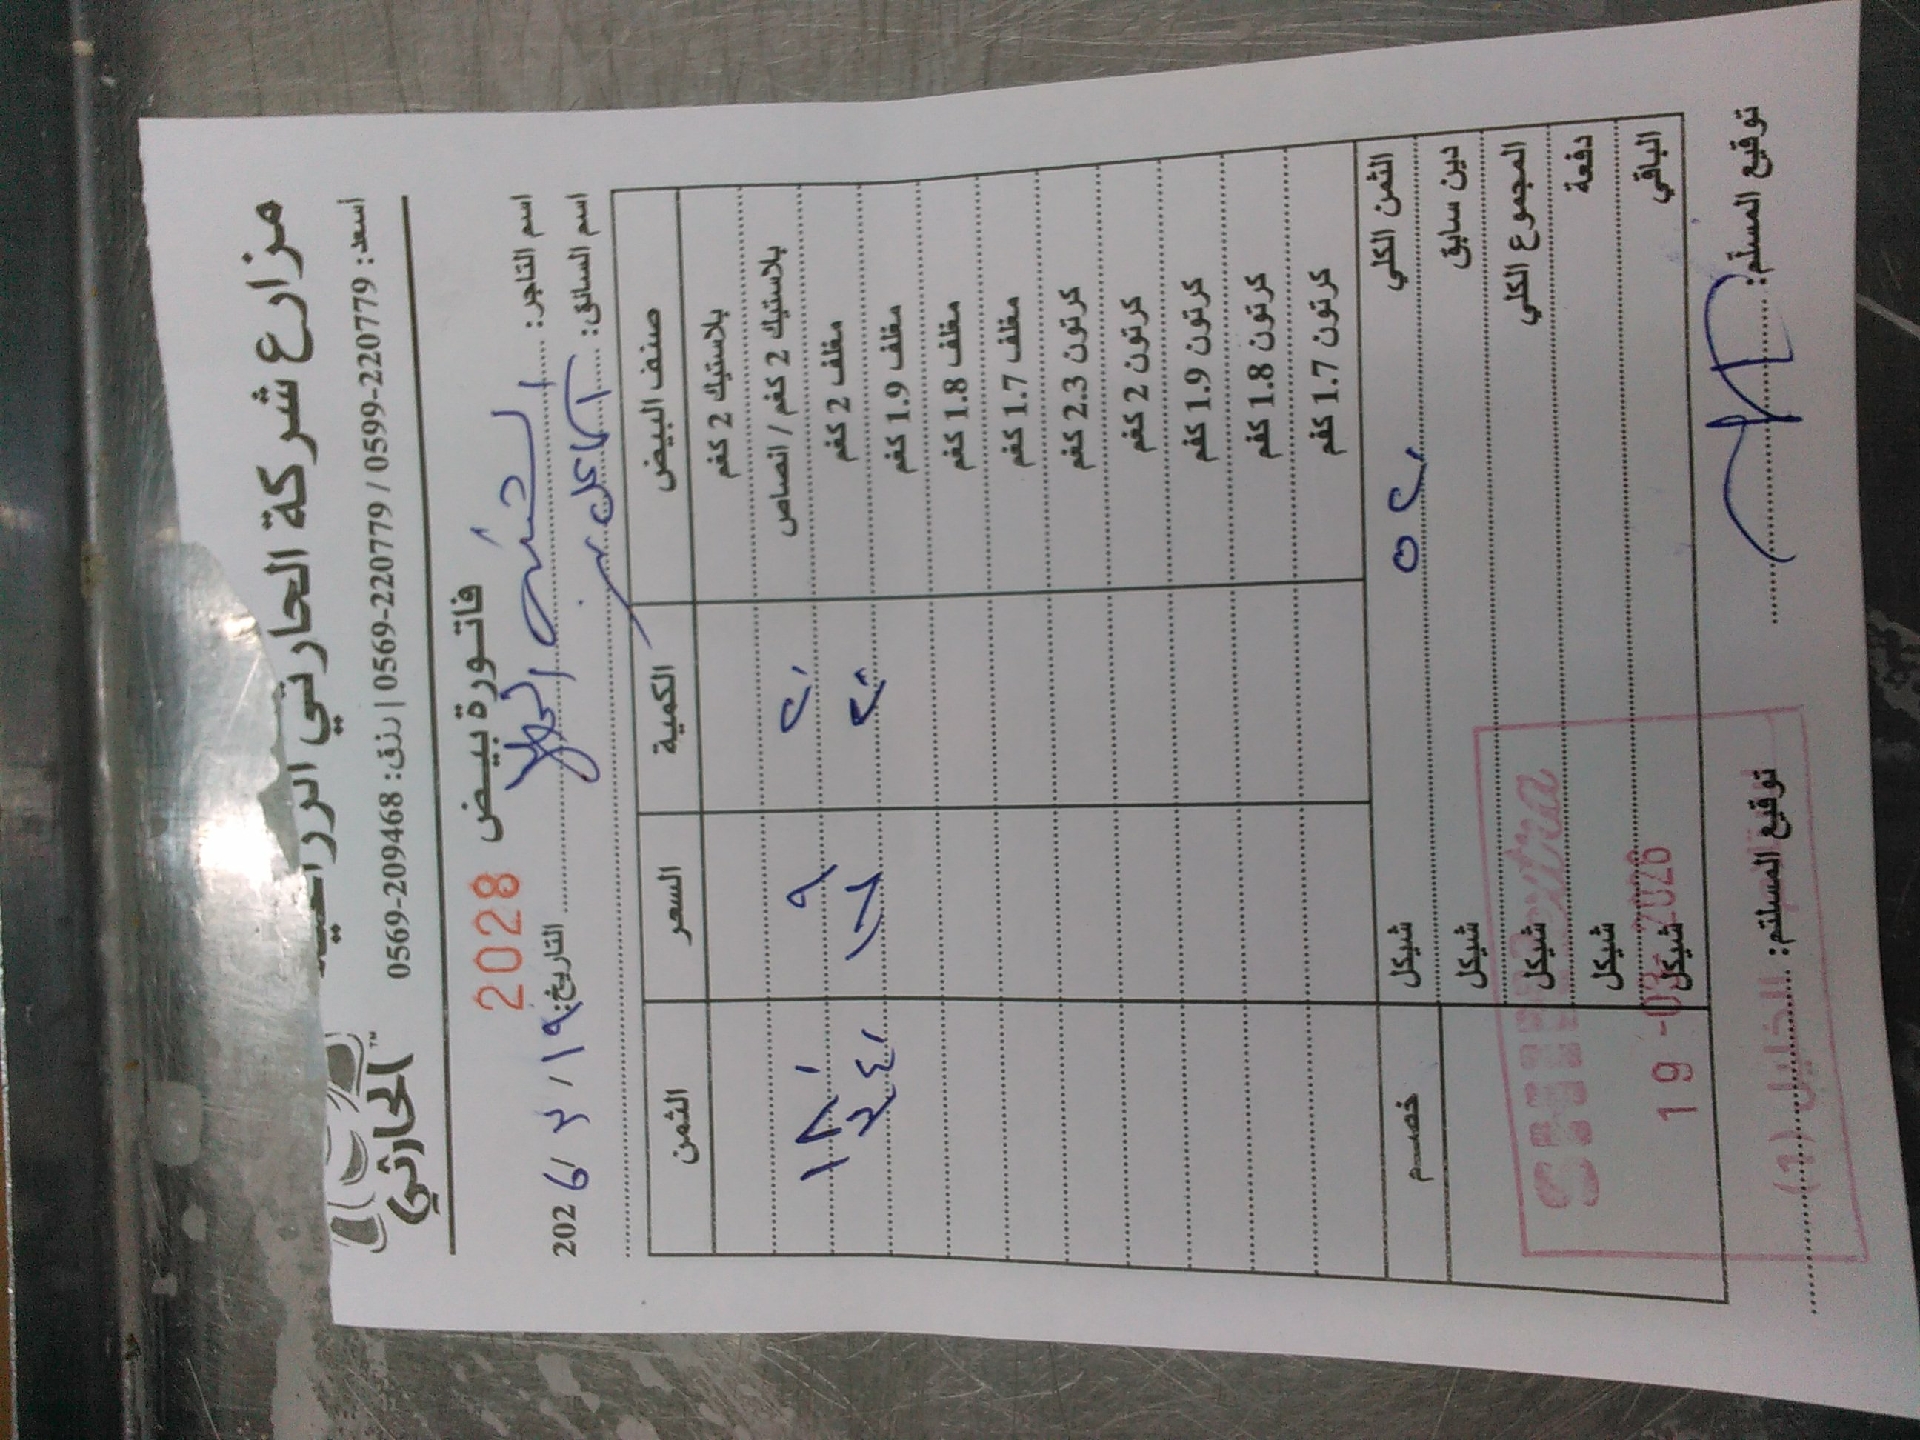 مزارع شركة الحارثي الزراعية
الحارثي
اسعد: 0599-220779 / 0569-220779 | رزق: 0569-209468
فاتورة بيض 2028
اسم التاجر:
التاريخ: ١٩ / ٣ / 2026
اسم السائق:
صنف البيض الكمية السعر الثمن
بلاستيك 2 كغم
بلاستيك 2 كغم / انصاص ٢٠ ٩ ١٨٠
مغلف 2 كغم ٢٠ ١٧ ٣٤٠
مغلف 1.9 كغم
مغلف 1.8 كغم
مغلف 1.7 كغم
كرتون 2.3 كغم
كرتون 2 كغم
كرتون 1.9 كغم
كرتون 1.8 كغم
كرتون 1.7 كغم
الثمن الكلي ٥٢٠ شيكل خصم
دين سابق شيكل
المجموع الكلي شيكل
دفعة شيكل
الباقي شيكل
extra
19 -03- 2026
الخليل (1)
توقيع المسلم: توقيع المستلم: